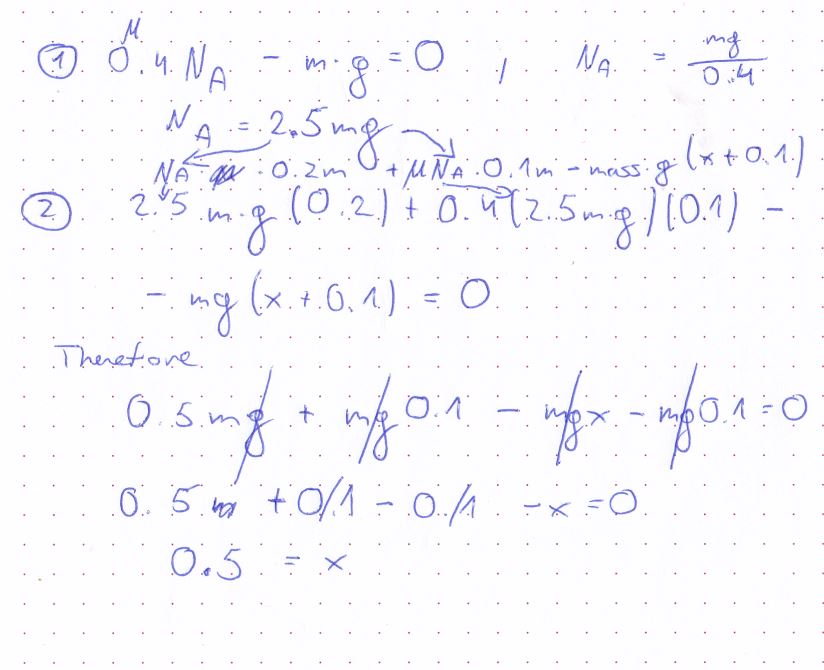 ① 0.4 N_A - m·g = 0 , N_A = mg/0.4
μ
N_A = 2.5mg
N_A · 0.2m + μN_A · 0.1m - mass·g(x + 0.1)
② 2.5 m·g (0.2) + 0.4(2.5m·g)(0.1) -
- mg(x + 0.1) = 0
Therefore
0.5mg + mg 0.1 - mgx - mg 0.1 = 0
0.5 + 0.1 - 0.1 - x = 0
0.5 = x